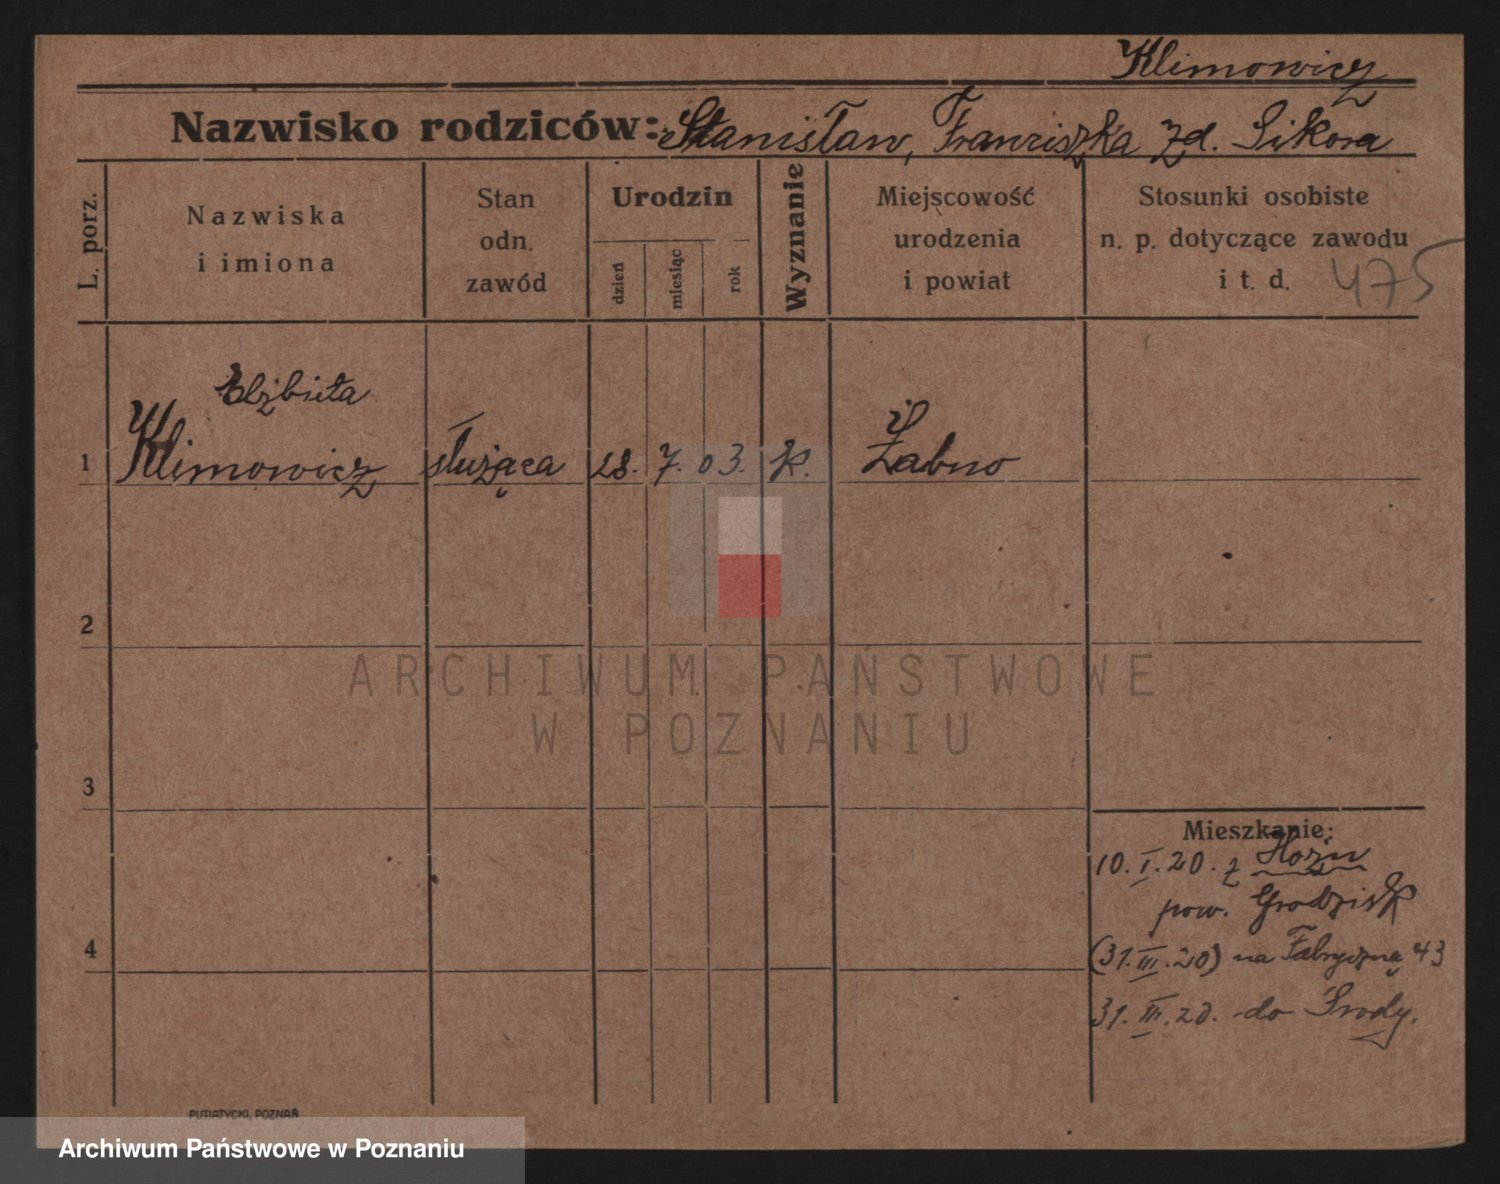 Klimowicz
Nazwisko rodziców: Stanisław, Franciszka zd. Sikora
L. porz.
Nazwiska
i imiona
Stan
odn.
zawód
Urodzin
dzień
miesiąc
rok
Wyznanie
Miejscowość
urodzenia
i powiat
Stosunki osobiste
n. p. dotyczące zawodu
i t. d.
475
Elżbieta
1 Klimowicz służąca 28. 7. 03. k. Żabno
2
3
4
Mieszkanie:
10.I.20. z
pow. Grodzisk
(31.III.20) na Fabryczną 43
31.III.20. do Środy.
PUTIATYCKI, POZNAŃ
ARCHIWUM PAŃSTWOWE
W POZNANIU
Archiwum Państwowe w Poznaniu